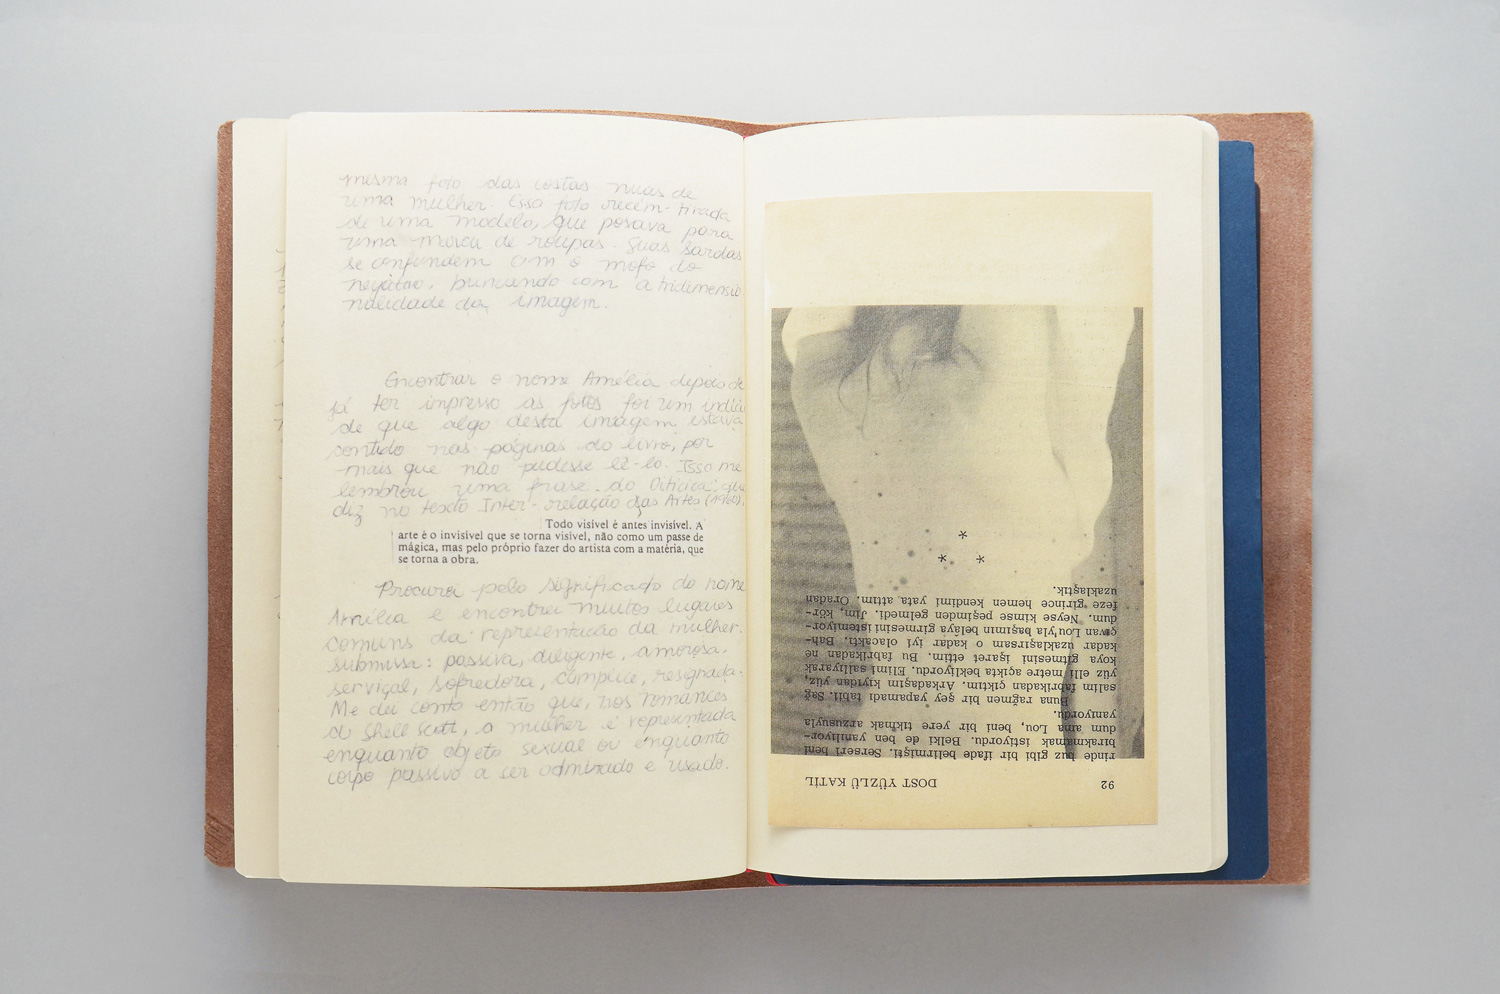 mesma foto das costas nuas de
uma mulher. Essa foto recém-tirada
de uma modelo, que posava para
uma marca de roupas. Suas sardas
se confundem com o mofo do
negativo, brincando com a tridimensio
nalidade da imagem.
Encontrar o nome Amélia depois de
já ter impresso as fotos foi um indício
de que algo desta imagem estava
contido nas páginas do livro, por
mais que não pudesse lê-lo. Isso me
lembrou uma frase do Oiticica, que
diz no texto Inter-relação das Artes (1960),
Todo visível é antes invisível. A
arte é o invisível que se torna visível, não como um passe de
mágica, mas pelo próprio fazer do artista com a matéria, que
se torna a obra.
Procurei pelo significado do nome
Amélia e encontrei muitos lugares
comuns da representação da mulher.
submissa: passiva, diligente, amorosa,
serviçal, sofredora, cúmplice, resignada.
Me dei conta então que, nos romances
do Shell Scott, a mulher é representada
enquanto objeto sexual ou enquanto
corpo passivo a ser admirado e usado.
92 DOST YÜZLÜ KATİL
rinde buz gibi bir ifade belirmişti. Serseri beni
bırakmamak istiyordu. Belki de ben yanılıyor-
dum ama Lou, beni bir yere tıkmak arzusuyla
yanıyordu.
Buna rağmen bir şey yapamadı tabii. Sağ
salim fabrikadan çıktım. Arkadaşım kıyıdan yüz,
yüz elli metre açıkta bekliyordu. Elimi sallıyarak
koya gitmesini işaret ettim. Bu fabrikadan ne
kadar uzaklaşırsam o kadar iyi olacaktı. Bah-
çıvan Lou'yla başımın belâya girmesini istemiyor-
dum. Neyse kimse peşinden gelmedi. Jim, kör-
feze girince hemen kendimi yata attım. Oradan
uzaklaştık.
* *
*